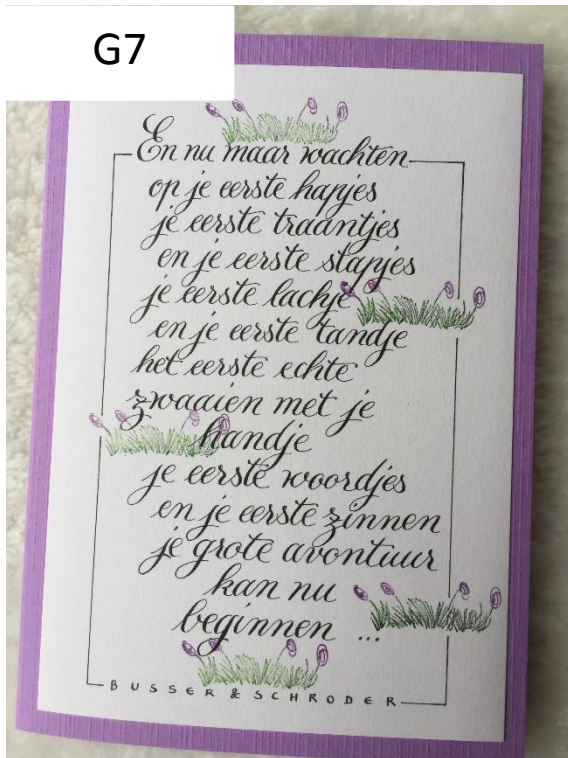 G7
En nu maar wachten
op je eerste hapjes
je eerste traantjes
en je eerste stapjes
je eerste lachje
en je eerste tandje
het eerste echte
zwaaien met je
handje
je eerste woordjes
en je eerste zinnen
je grote avontuur
kan nu
beginnen ...
BUSSER & SCHRODER